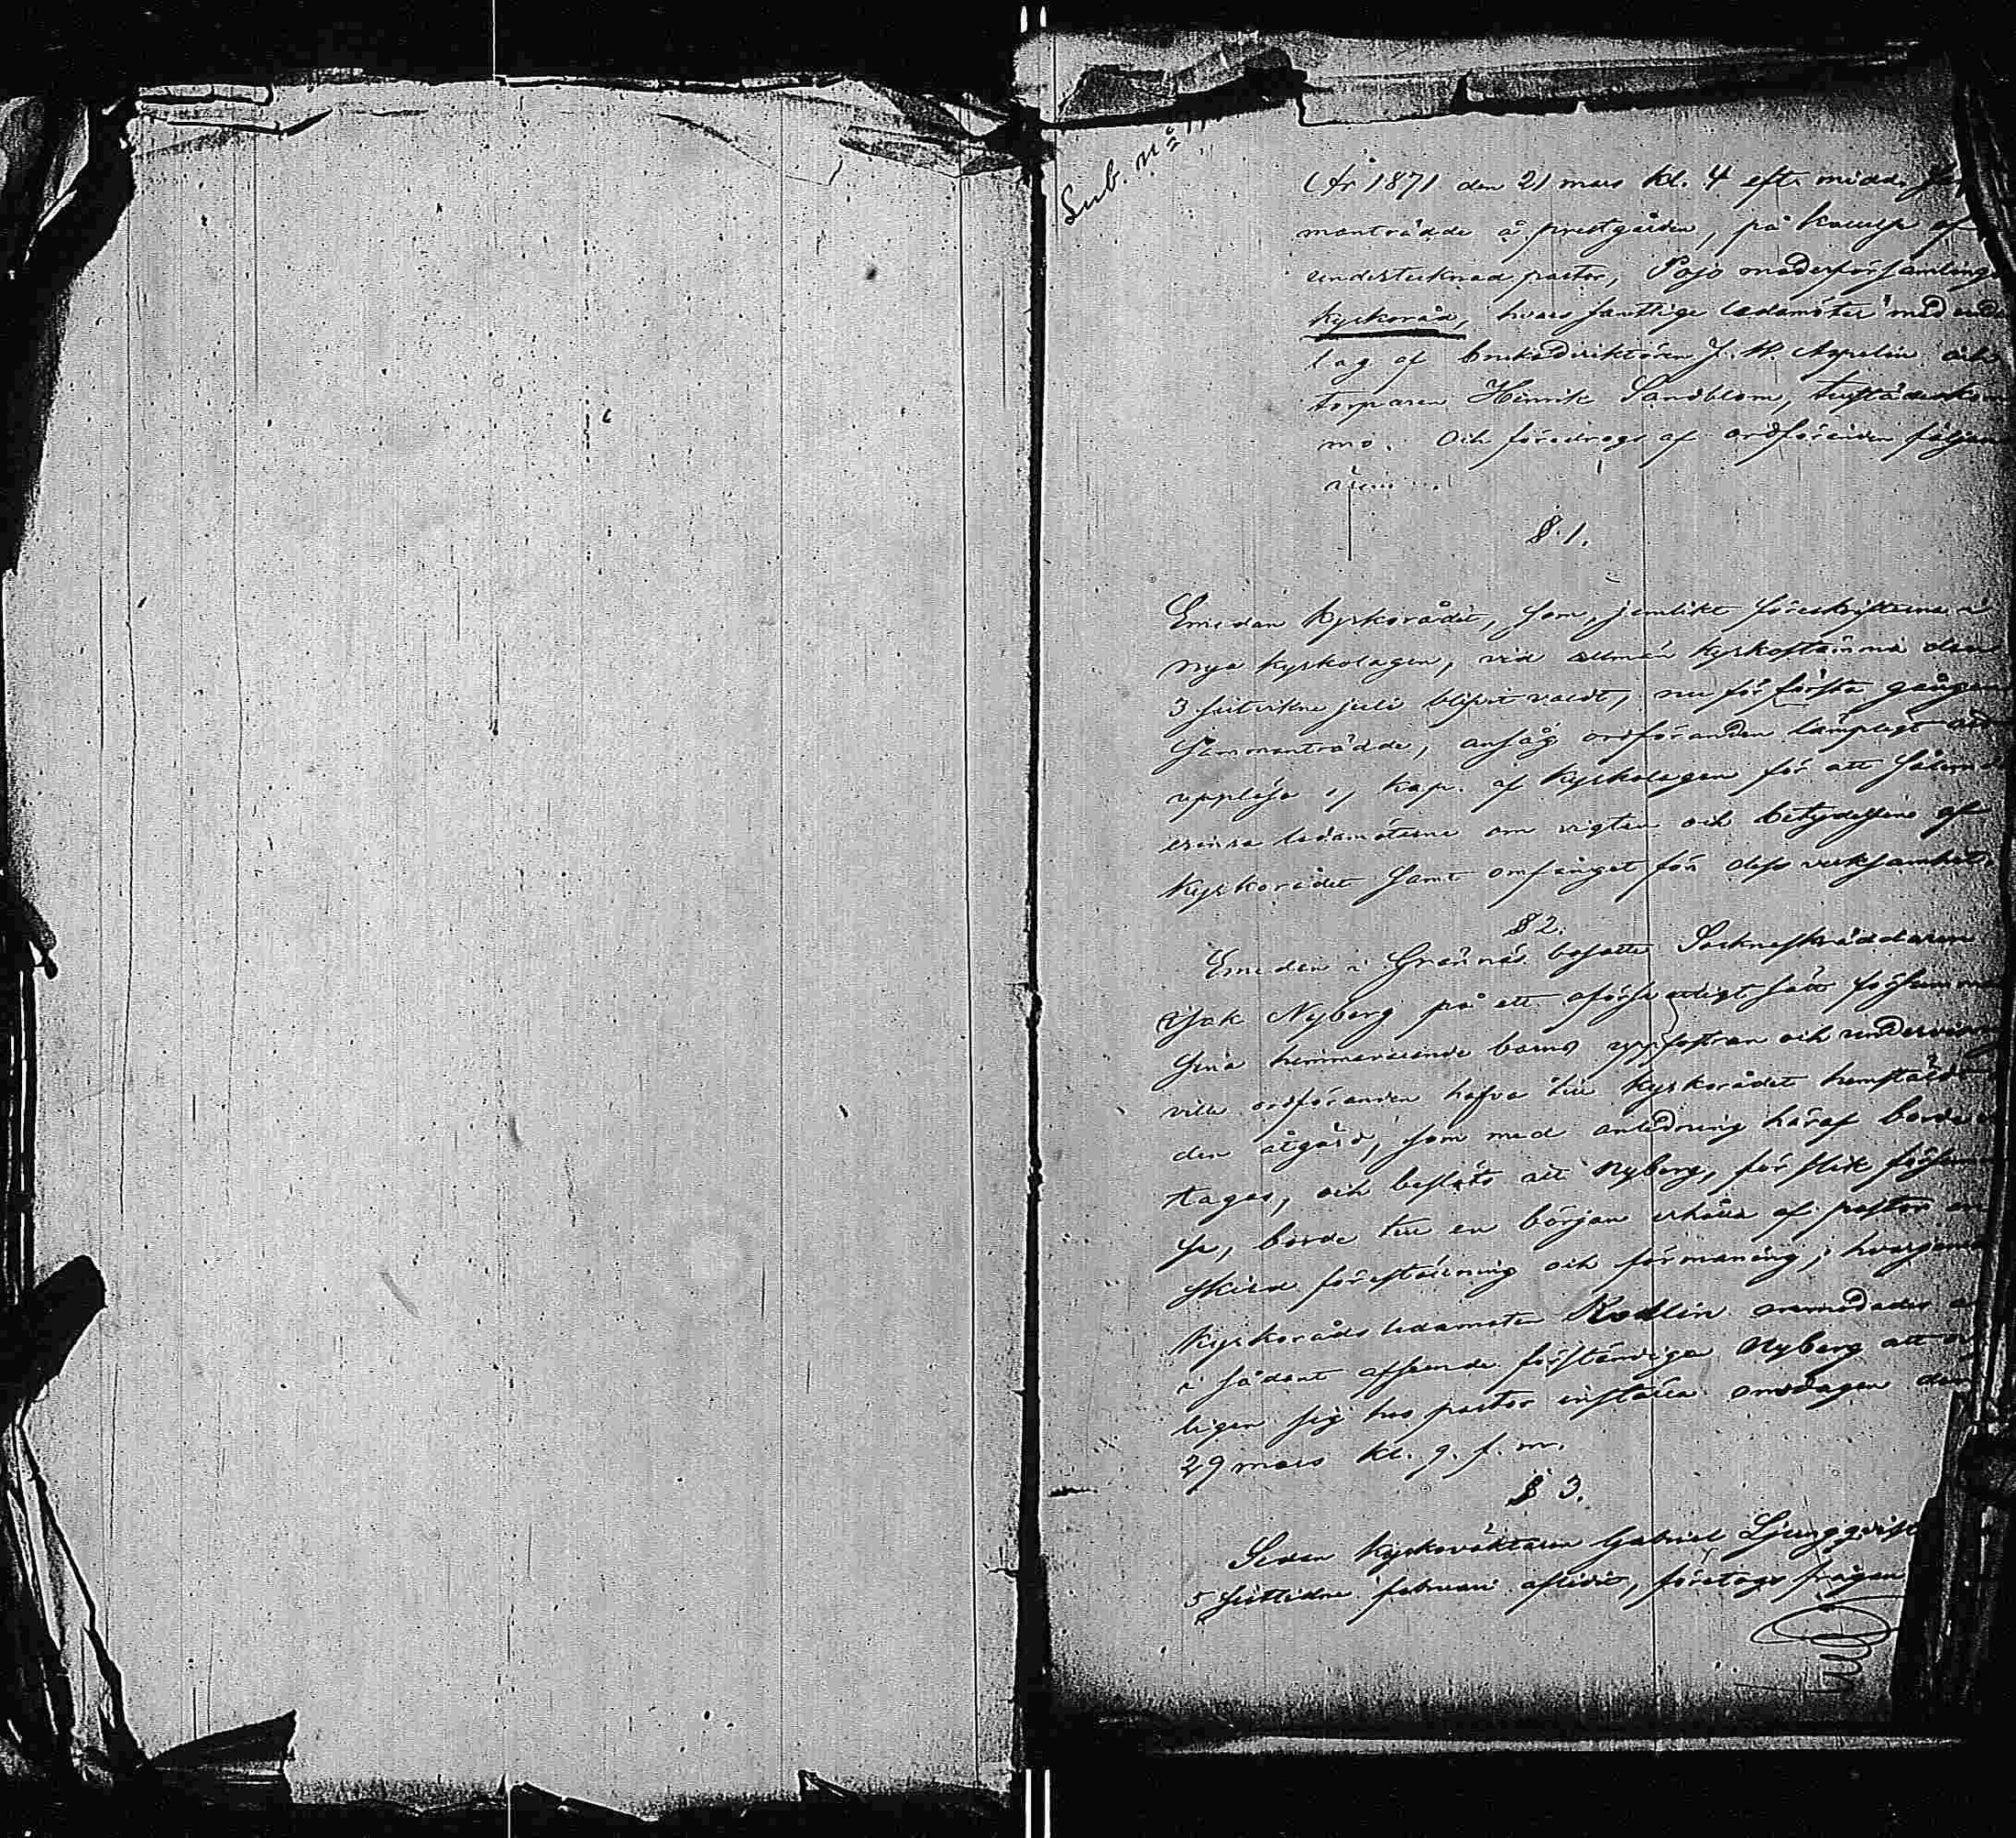 Lub. No
År 1871 den 21 mars kl. 4 eft. midd.
manträdde å prestgården, på kallelse af
undertecknad pastor, Pojo moderförsamlings
kyrkoråd, hvars samtlige ledamöter med undan
tag af bruksdirektören J. W. Aspelin och
torparen Henrik Sandblom, tillstädeskom
mo. Ochföredrogs af ordföranden följan

§.1.
Emedan kyrkorådet, som, jemlikt föreskrifterna i
nya kyrkolagen, vid allmän kyrkostämma den
3 sistvikne juli blifvit valdt, nu för första gången
sammanträdde, ansåg ordföranden lämpligt att
uppläsa kap. af kyrkolagen för att
erinra ledamöterne om vigten och betydelsen af
kyrkorådet samt omfånget för dess verksamhet.
§ 2.
Emedan i Grännäs bosatte Sockneskräddaren
Isak Nyberg på ett oförsvarligt sätt försummat
sina hemmavarande barns uppfostran och undervisning
ville ordföranden hafva till kyrkorådet hemstäldt
den åtgärd, som med anledning häraf borde
tagas, och beslöts att Nyberg, för slik försum
se, borde till en början erhålla af pastor en
skild föreställning och förmaning; hvarjemte
Kyrkoråds ledamoten Rodlin anmodades a
i sådant afseende förständiga Nyberg att o
ligen sig hos pastor inställa onsdagen den
29 mars kl. 9. f. m.
§ 3.
Sedan kyrkovaktaren Gabriel Ljungqvist
5 sistledne februari aflidit, företogs frågan